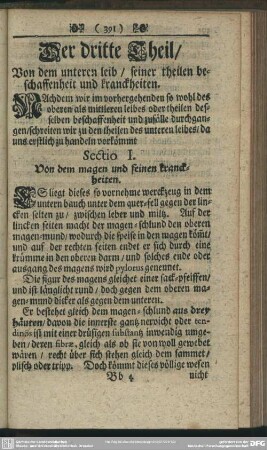 ( 391 )
Der dritte Theil/
Von dem unteren leib / seiner theilen be-
schaffenheit und kranckheiten.
NAchdem wir im vorhergehenden so wohl des
oberen als mittleren leibes oder theilen des-
selben beschaffenheit und zufälle durchgan-
gen/ schreiten wir zu den theilen des unteren leibes/ da
uns erstlich zu handeln vorkommt
Sectio I.
Von dem magen und seinen kranck-
heiten.
ES liegt dieses so vornehme werckzeug in dem
untern bauch unter dem quer-fell gegen der lin-
cken seiten zu / zwischen leber und miltz. Auf der
lincken seiten macht der magen-schlund den oberen
magen-mund/ wodurch die speise in den magen kom̃t/
und auf der rechten seiten endet er sich durch eine
krümme in den oberen darm/ und solches ende oder
ausgang des magens wird pylorus genennet.
Die figur des magens gleichet einer sack-pfeiffen/
und ist länglicht rund / doch gegen dem oberen ma-
gen-mund dicker als gegen dem unteren.
Er bestehet gleich dem magen-schlund aus drey
häuten/ davon die innerste gantz nervicht oder ten-
dinös ist mit einer drüsigen substantz inwendig umge-
ben / deren fibræ, gleich als ob sie von woll gewebet
wären / recht über sich stehen gleich dem sammet/
plüsch oder tripp. Doch kömmt dieses völlige wesen
Bb 4 nicht